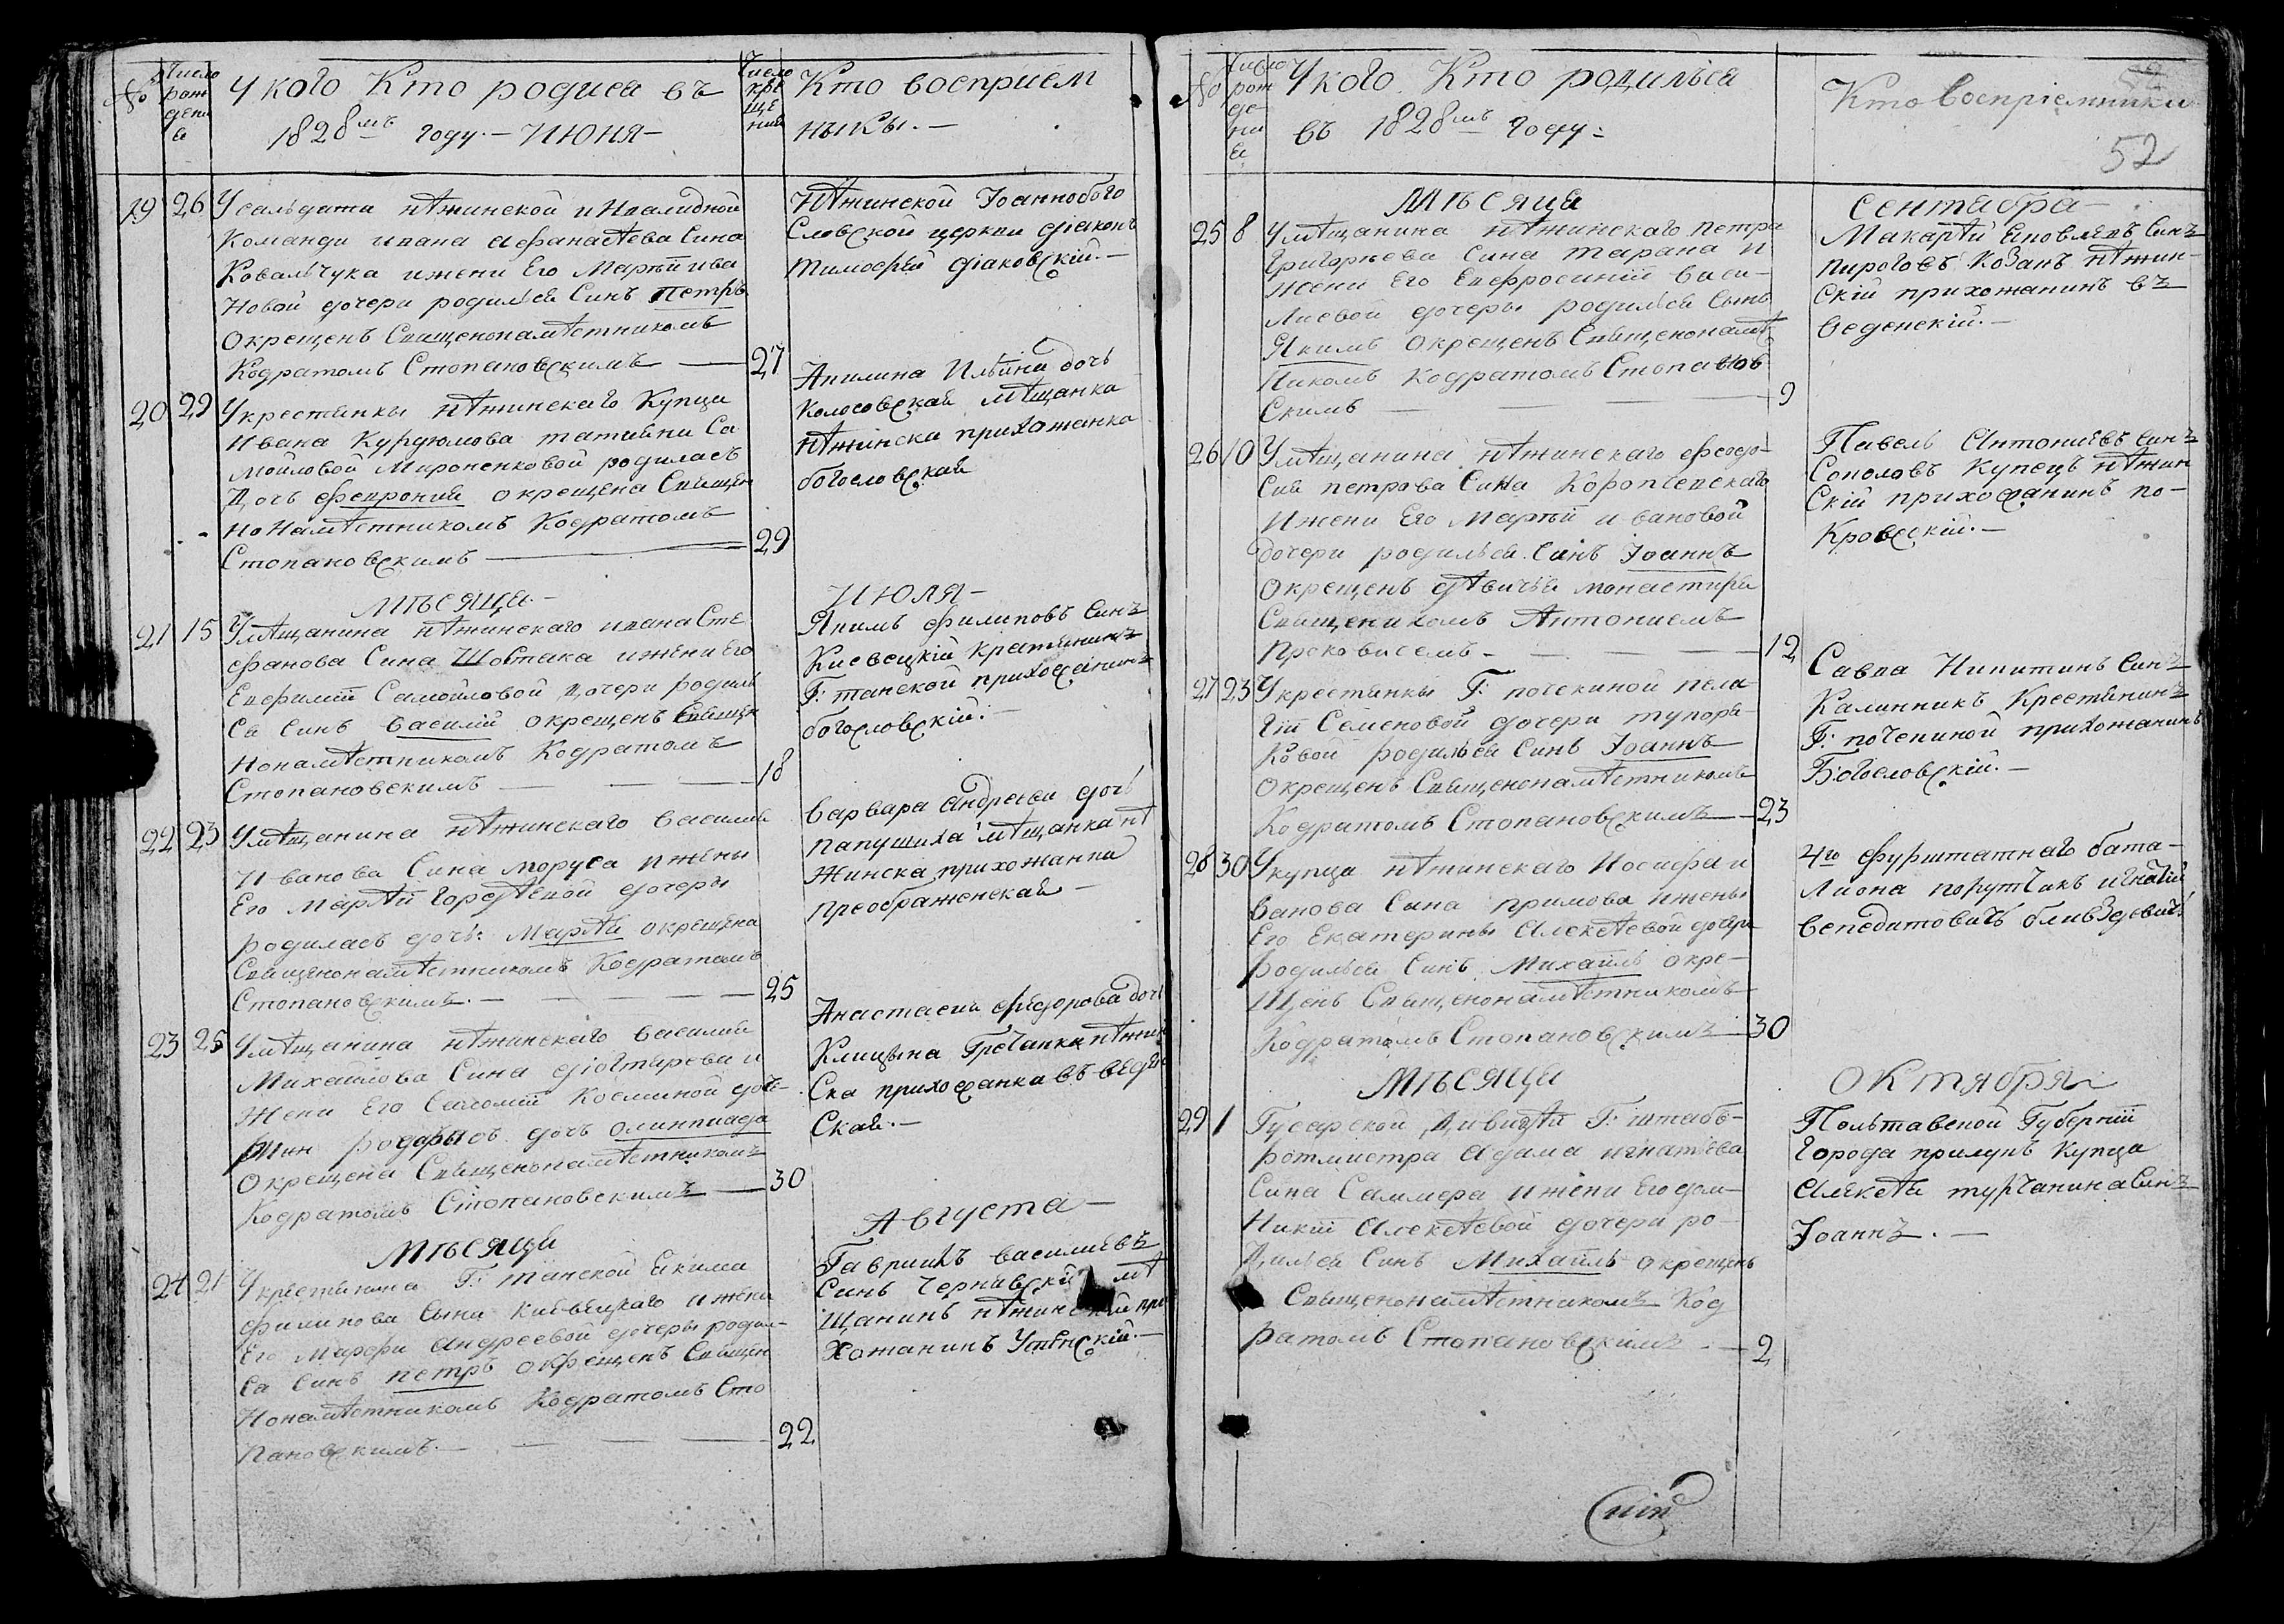 №
Число рож дени я
У кого Кто родися въ
1828мъ году.- ИЮНЯ-
Число кре ще ния
Кто восприем
ныки.-
19 26 У салдата нѣжинской инвалидной
Команди ивана афанасѣева Сина
Ковальчука ижени Его Марѣи ива
новой дочери родилься Синъ Петръ
Окрещенъ Священонамѣстникомъ
Кодратомъ Стопановскимъ — 27
Нѣжинской Іоаннобого
Словской церкви діаконъ
Тимофей діаковскій.-
20 29 У крестянки нѣжинскаго Купца
Ивана Курдюмова татияни Са
мойловой Мироненковой родилась
Дочь феврония окрещена Священ
но Намѣстникомъ Кодратомъ
Стопановскимъ — 29
Акилина Ильина дочь
Колосовская мѣщанка
нѣжинска прихожанка
богословская
МѢСЯЦА.-
ИЮЛЯ-
21 15 У мѣщанина нѣжинскаго ивана Сте
фанова Сина Шостака ижени Его
Евфимии Самойловой дочери родиль
Ся Синъ василій окрещенъ Священ
нонамѣстникомъ Кодратомъ
Стопановскимъ — 18
Якимъ филиповъ Синъ
Киевецкій Крестянинъ
Г: танской прихожанинъ
богословскій.-
22 23 У мѣщанина нѣжинскаго василия
Иванова Сина моруса ижены
Его Марѣи Гордѣевой дочеры
родилась дочь: Марѣя окрещена
Священонамѣстникомъ Кодратомъ
Стопановскимъ.- — 25
варвара андреева дочь
папушиха мѣщанка нѣ
жинска прихожанка
преображенская-
23 25 У мѣщанина нѣжинскаго василия
Михаилова Сина діогтярева и
жени Его Саломии Косминой доч-
родилась дочь олимпиада
Окрещена Священонамѣстникомъ
Кодратомъ Стопановскимъ — 30
Анастасия федорова дочь
Клицына Гречанка нѣжин
Ска прихожанка въ-веден
Ская.-
МѢСЯЦА
Августа-
24 21 У крестянина Г: танской Якима
филипова Сына киевецкаго ижени
Его марфи андреевой дочеры родил-
Ся Синъ петръ окрещенъ Священ
нонамѣстникомъ Кодратомъ Сто
пановскимъ.- — 22
Гавриилъ василиевъ
Синъ Чернявскій мѣ
щанинъ нѣжинскій при
хожанинъ Успѣнскій.-
№
Число рож де ни я
У кого Кто родилься
въ 1828мъ году:
Кто Восприемники
52
МѢСЯЦА
Сентября-
25 8 У мѣщанина нѣжинскаго петра
Григорьева Сина тарана и
жени Его Евфросинии васи-
лиевой дочеры родилься Сынъ
Якимъ окрещенъ Священонамѣст
никомъ Кодратомъ Стопанов
Скимъ — 9
Макарѣй Яковлевъ Синъ
пироговъ Козакъ нѣжин-
Скій прихожанинъ въ
веденскій.-
26 10 У мѣщанина нѣжинскаго феодо-
Сия петрова Сина Коропчевскаго
Ижени Его Марѣи ивановой
дочери родилься Синъ Іоаннъ
Окрещенъ дѣвичья монастиря
Священикомъ Антониемъ
Прокописемъ - — 12
Павелъ Антониевъ Синъ
Соколовъ Купецъ нѣжин
Скій прихожанинъ по-
Кровскій.-
27 23 У крестянки Г: почекиной пела-
гіи Семеновой дочери тупоря-
Ковой родилься Синъ Іоаннъ
Окрещенъ Священонамѣстникомъ
Кодратомъ Стопановскимъ — 23
Савва Никитинъ Синъ
Калинникъ Крестянинъ
Г: почекиной прихожанинъ
Богословскій.-
28 30 У купца нѣжинскаго Иосифа и
ванова Сина примова ижены
Его Екатерины Алексѣевой дочери
Родилься Синъ Михаилъ окре-
щенъ Священонамѣстникомъ
Кодратомъ Стопановскимъ — 30
4го фурштатнаго бата-
лиона порутчикъ игнатій
МѢСЯЦА
Октября
29 1 Гусарской дивизѣи Г: штабъ-
ротмистра Адама игнатіева
Сина Саммера ижени Его дом-
никіи Алексѣевой дочери ро-
дилься Синъ Михаилъ окрещенъ
Священонамѣстникомъ Код
ратомъ Стопановскимъ — 2
Польтавской Губернии
Города прилукъ Купца
Алексѣя турчанина Синъ
Іоаннъ.-